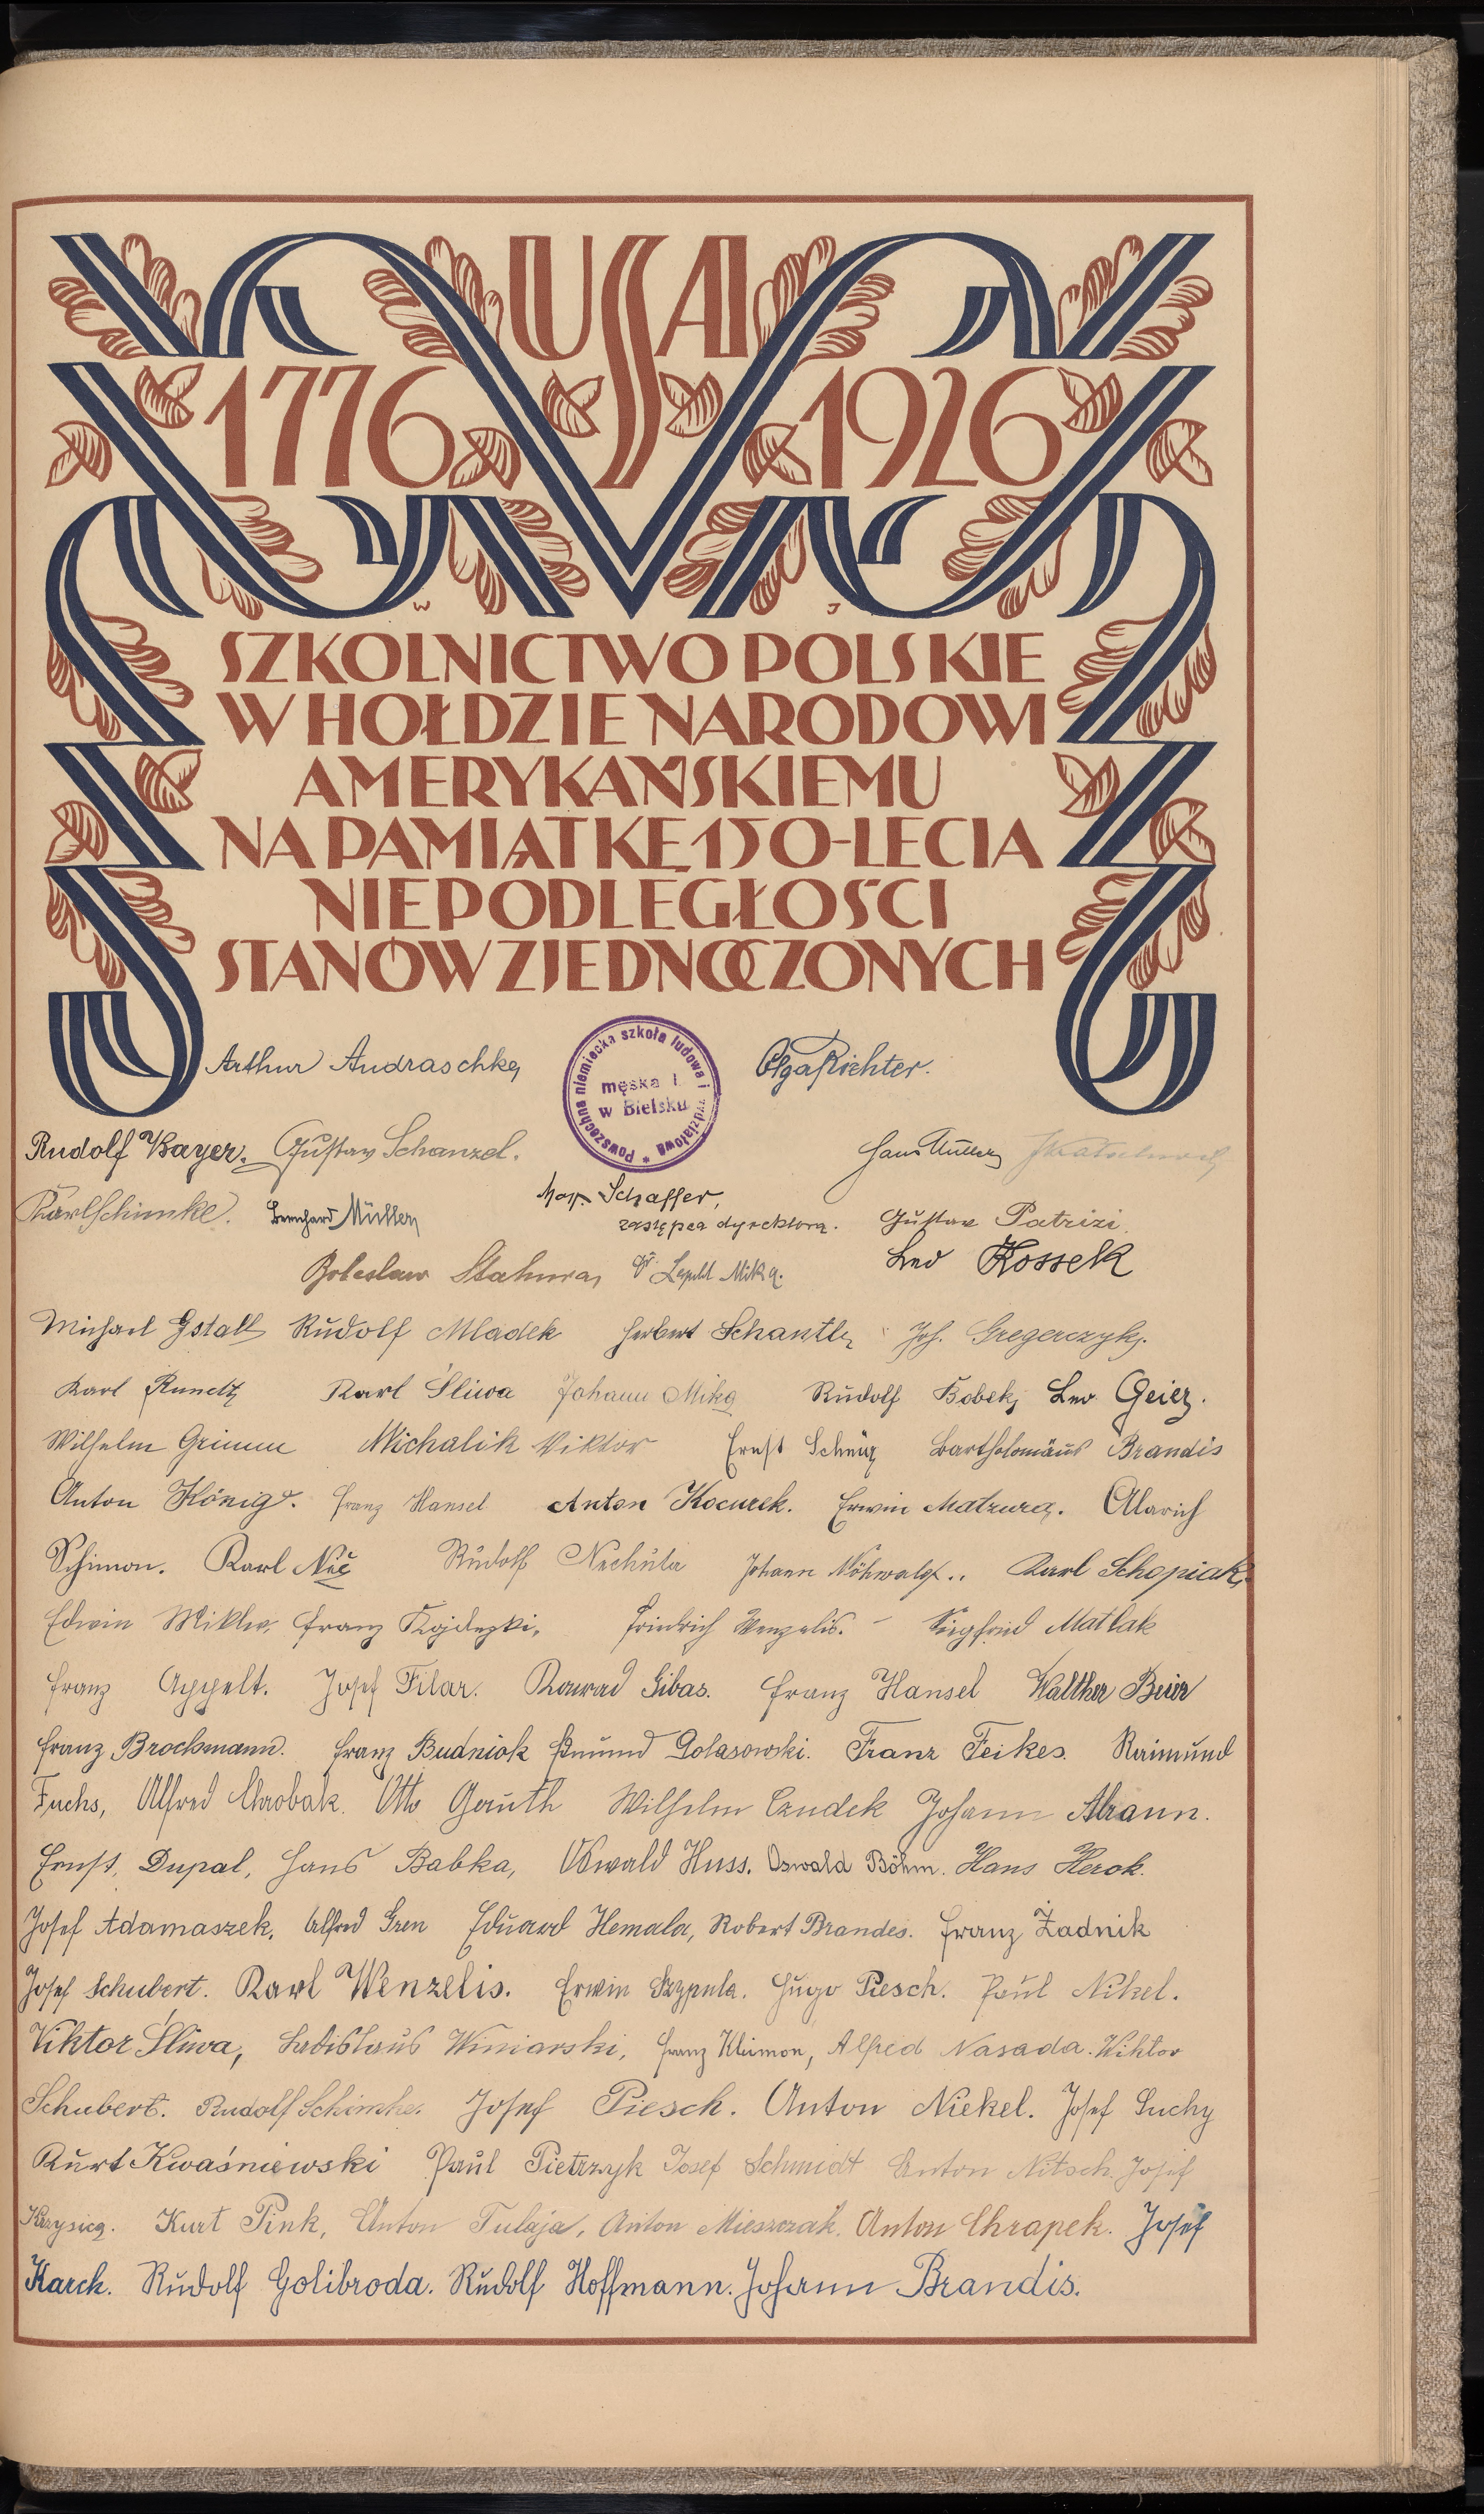 USA
1776 1926
W J
SZKOLNICTWO POLSKIE
W HOŁDZIE NARODOWI
AMERYKAŃSKIEMU
NA PAMIĄTKĘ 150-LECIA
NIEPODLEGŁOŚCI
STANÓW ZJEDNOCZONYCH
Arthur Andraschke, Olga Richter.
Powszechna niemiecka szkoła ludowa i wydziałowa *
męska I.
w Bielsku
Rudolf Bayer. Gustav Schanzel. Hans Müller,
Karl Schimke. Bernhard Müller, Schaffer, 
zastępca dyrektora. Gustav Patrizi.
Boleslaw Dr. Leopold Mika. Leo Kossek
Michael Gstall Rudolf Mladek Herbert Schantl, Joh. Gregerczyk.
Karl Karl Śliwa Johann Mika Rudolf Bobek, Leo Geier.
Wilhelm Grimm Michalik Viktor Ernst Bartholomäus Brandis
Anton König. Franz Hansel Anton Kocurek. Erwin Matzura. Alarich
Schimon. Karl Nič Rudolf Nechuta Johann Karl Schopiak,
Edwin Mikler, Franz Friedrich Wenzelis. – Siegfried Matlak
Franz Appelt. Josef Filar. Konrad Gibas. Franz Hansel Walther Beier
Franz Brockmann. Franz Budniok Edmund Golasowski. Franz Feikes. Raimund
Fuchs, Alfred Chrobak. Otto Gauth Wilhelm Czudek Johann Abrann.
Ernst, Dupal, Hans Babka, Oswald Huss. Oswald Böhm. Hans Herok.
Josef Adamaszek, Alfred Gren Eduard Hemala, Robert Brandes. Franz Żadnik
Josef Schubert. Karl Wenzelis. Erwin Szypula. Hugo Piesch. Paul Nikel.
Viktor Śliwa, Ladislaus Winiarski, Franz Klimon, Alfred Nasada. Viktor
Schubert. Rudolf Schimke. Josef Piesch. Anton Niekel. Josef Suchy
Kurt Kwaśniewski Paul Pietrzyk Josef Schmidt Anton Nitsch. Josef
Krzysica. Kurt Pink, Anton Tulaja, Anton Mieszczak. Anton Chrapek. Josef
Karch. Rudolf Golibroda. Rudolf Hoffmann. Johann Brandis.